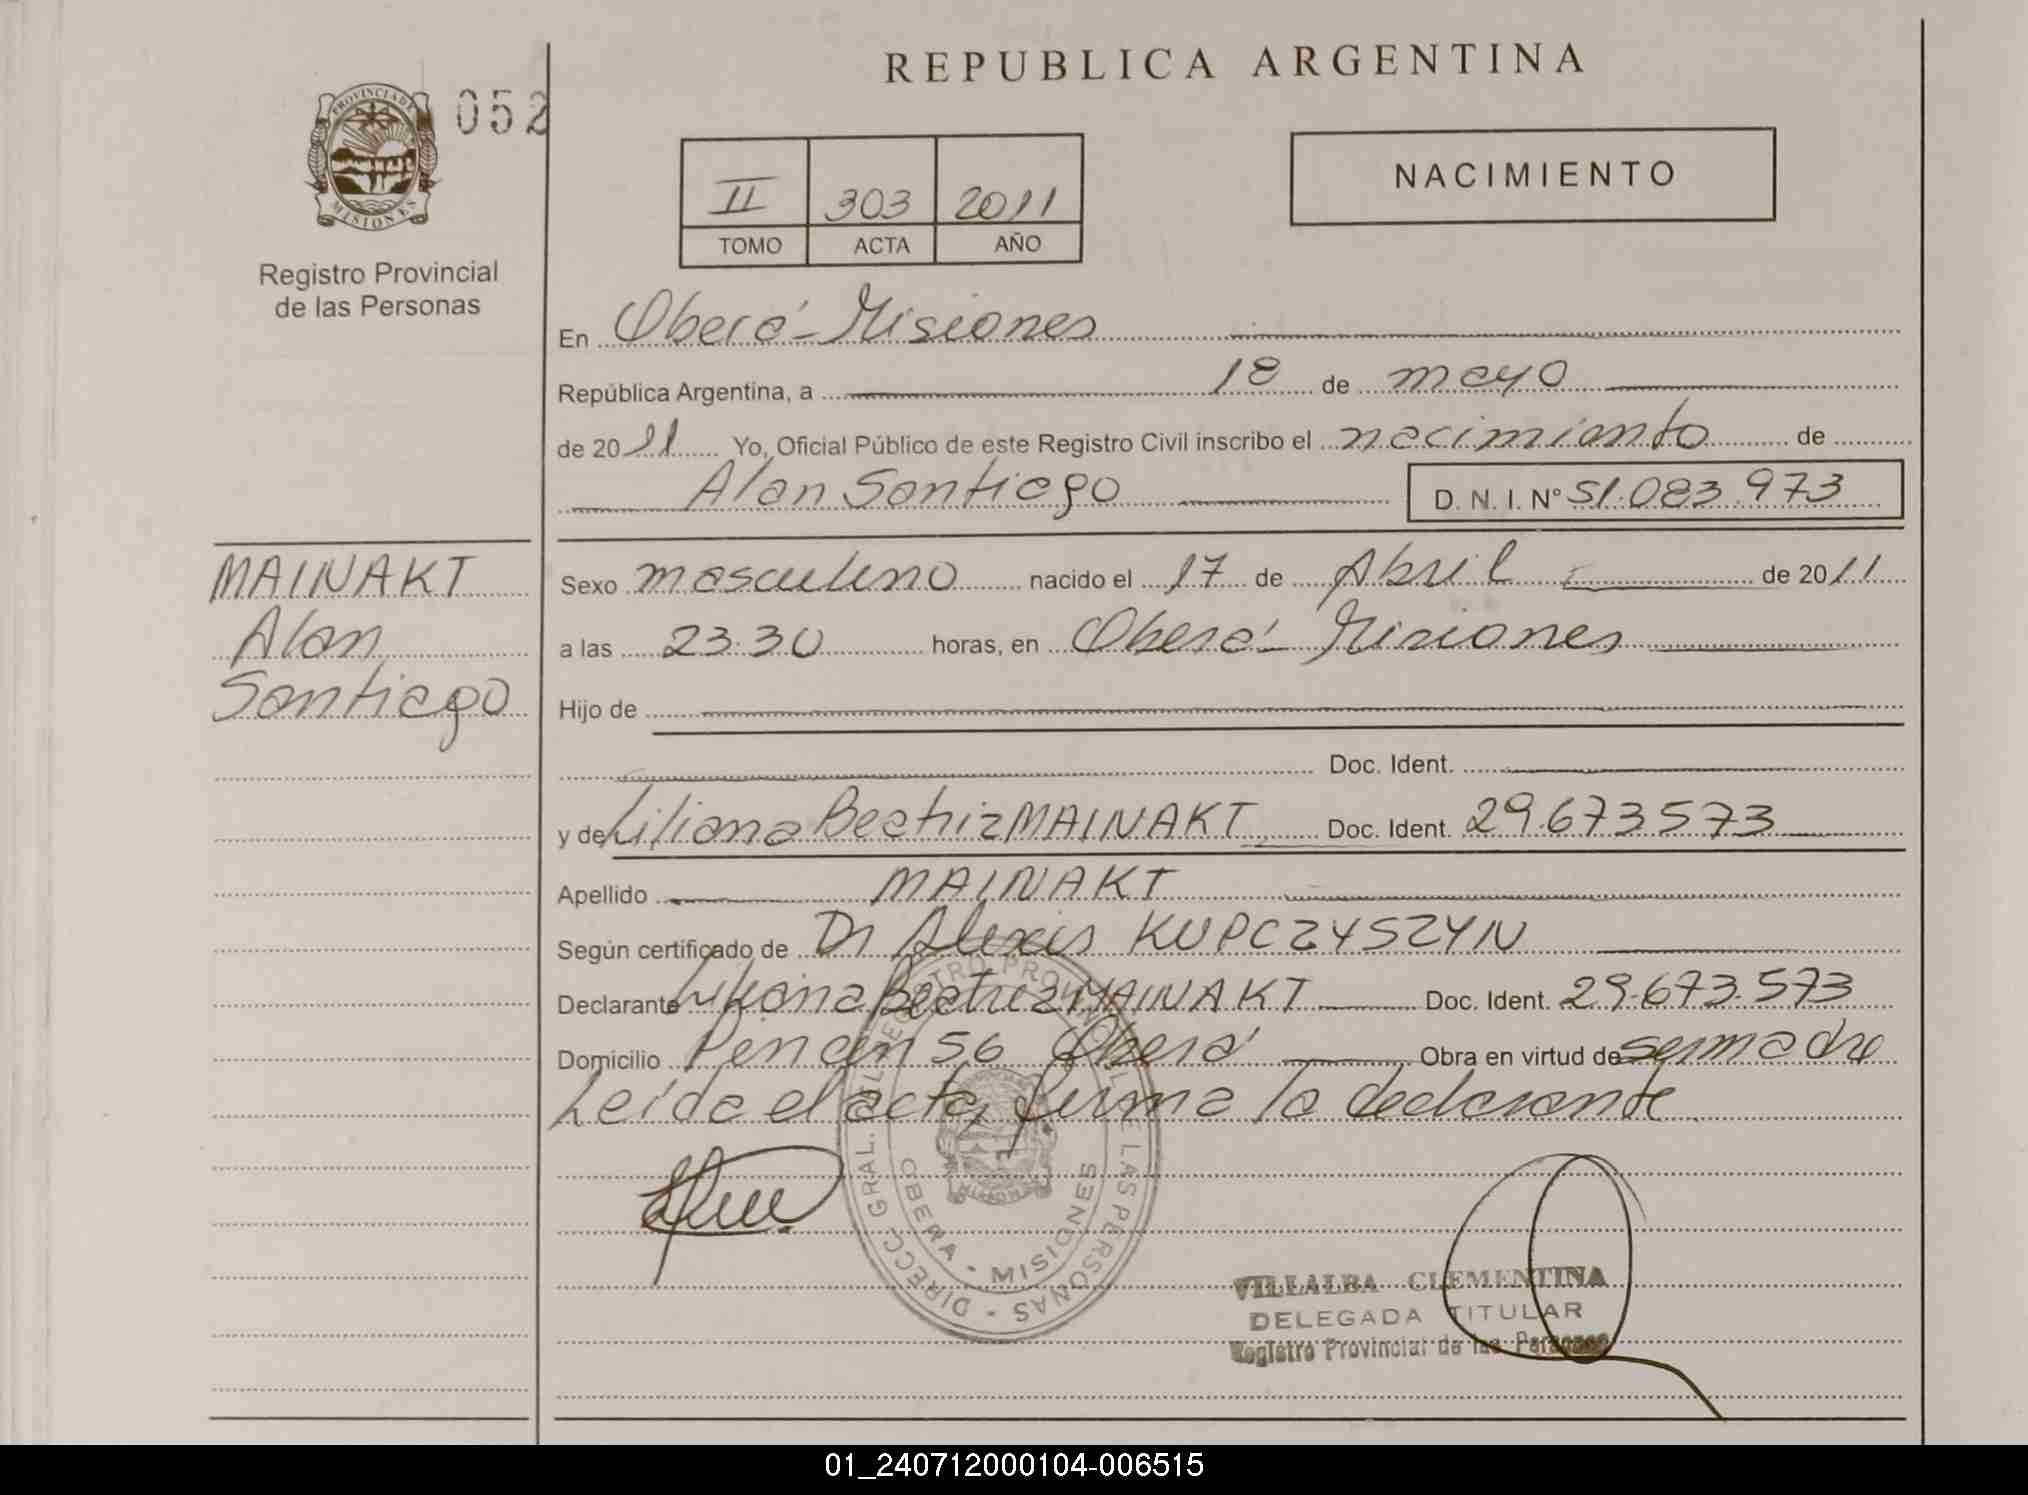 REPUBLICA ARGENTINA
PROVINCIA DE
MISIONES
052
Registro Provincial
de las Personas
II 303 2011
TOMO ACTA AÑO
NACIMIENTO
En Oberá - Misiones
República Argentina, a 18 de mayo
de 2011 Yo, Oficial Público de este Registro Civil inscribo el nacimiento de
Alan Santiago D. N. I. N° 51.083.973
MAINAKT
Alan
Santiago
Sexo masculino nacido el 17 de Abril de 2011
a las 23.30 horas, en Oberá - Misiones
Hijo de
Doc. Ident.
y de Liliana Beatriz MAINAKT Doc. Ident. 29.673573
Apellido MAINAKT
Según certificado de Dr Alexis KUPCZYSZYN
Declarante Liliana Beatriz MAINAKT Doc. Ident. 29.673.573
Domicilio 56 Oberá Obra en virtud de ser madre
Leída el acta, firma la declarante
DIRECC. GRAL. DEL REGISTRO PROVINCIAL DE LAS PERSONAS
OBERA - MISIONES
VILLALBA CLEMENTINA
DELEGADA TITULAR
Registro Provincial de las Personas
01_240712000104-006515